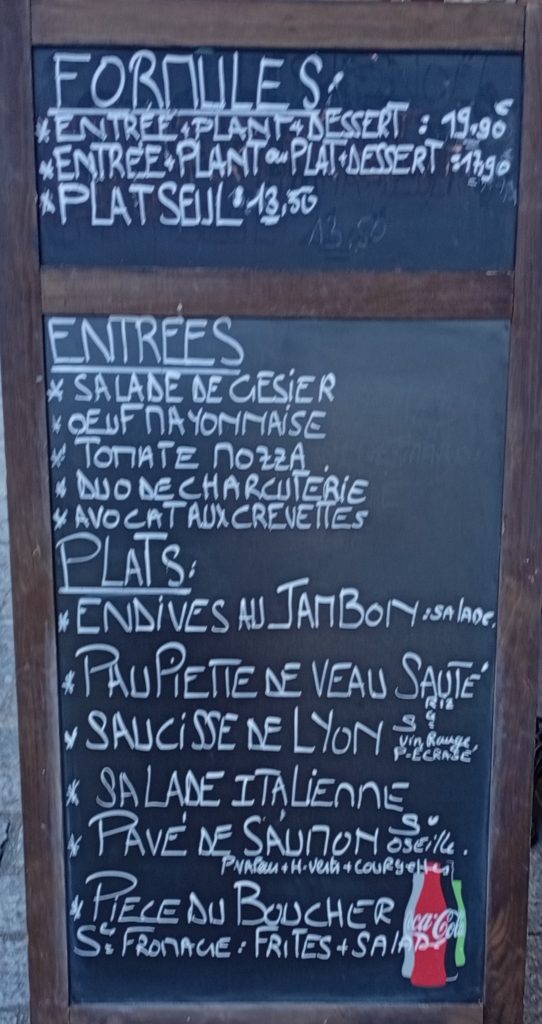 FORMULES:
* ENTRÉE + PLANT + DESSERT : 19,90€
* ENTRÉE + PLANT ou PLAT + DESSERT : 17,90
* PLAT SEUL : 13,50
13,50
ENTRÉES
* SALADE DE GESIER
* OEUF MAYONNAISE
* TOMATE MOZZA
* DUO DE CHARCUTERIE
* AVOCAT AUX CREVETTES
PLATS:
* ENDIVES AU JAMBON : SALADE.
* PAUPIETTE DE VEAU SAUTÉ
RIZ
* SAUCISSE DE LYON Sce
Vin Rouge,
P-ECRASÉ
* SALADE ITALIENNE
* PAVÉ DE SAUMON Sce
OSEILLE.
+ H-Vert + COURGETTES
* PIECE DU BOUCHER
Sce FROMAGE : FRITES + SALADE
Coca-Cola